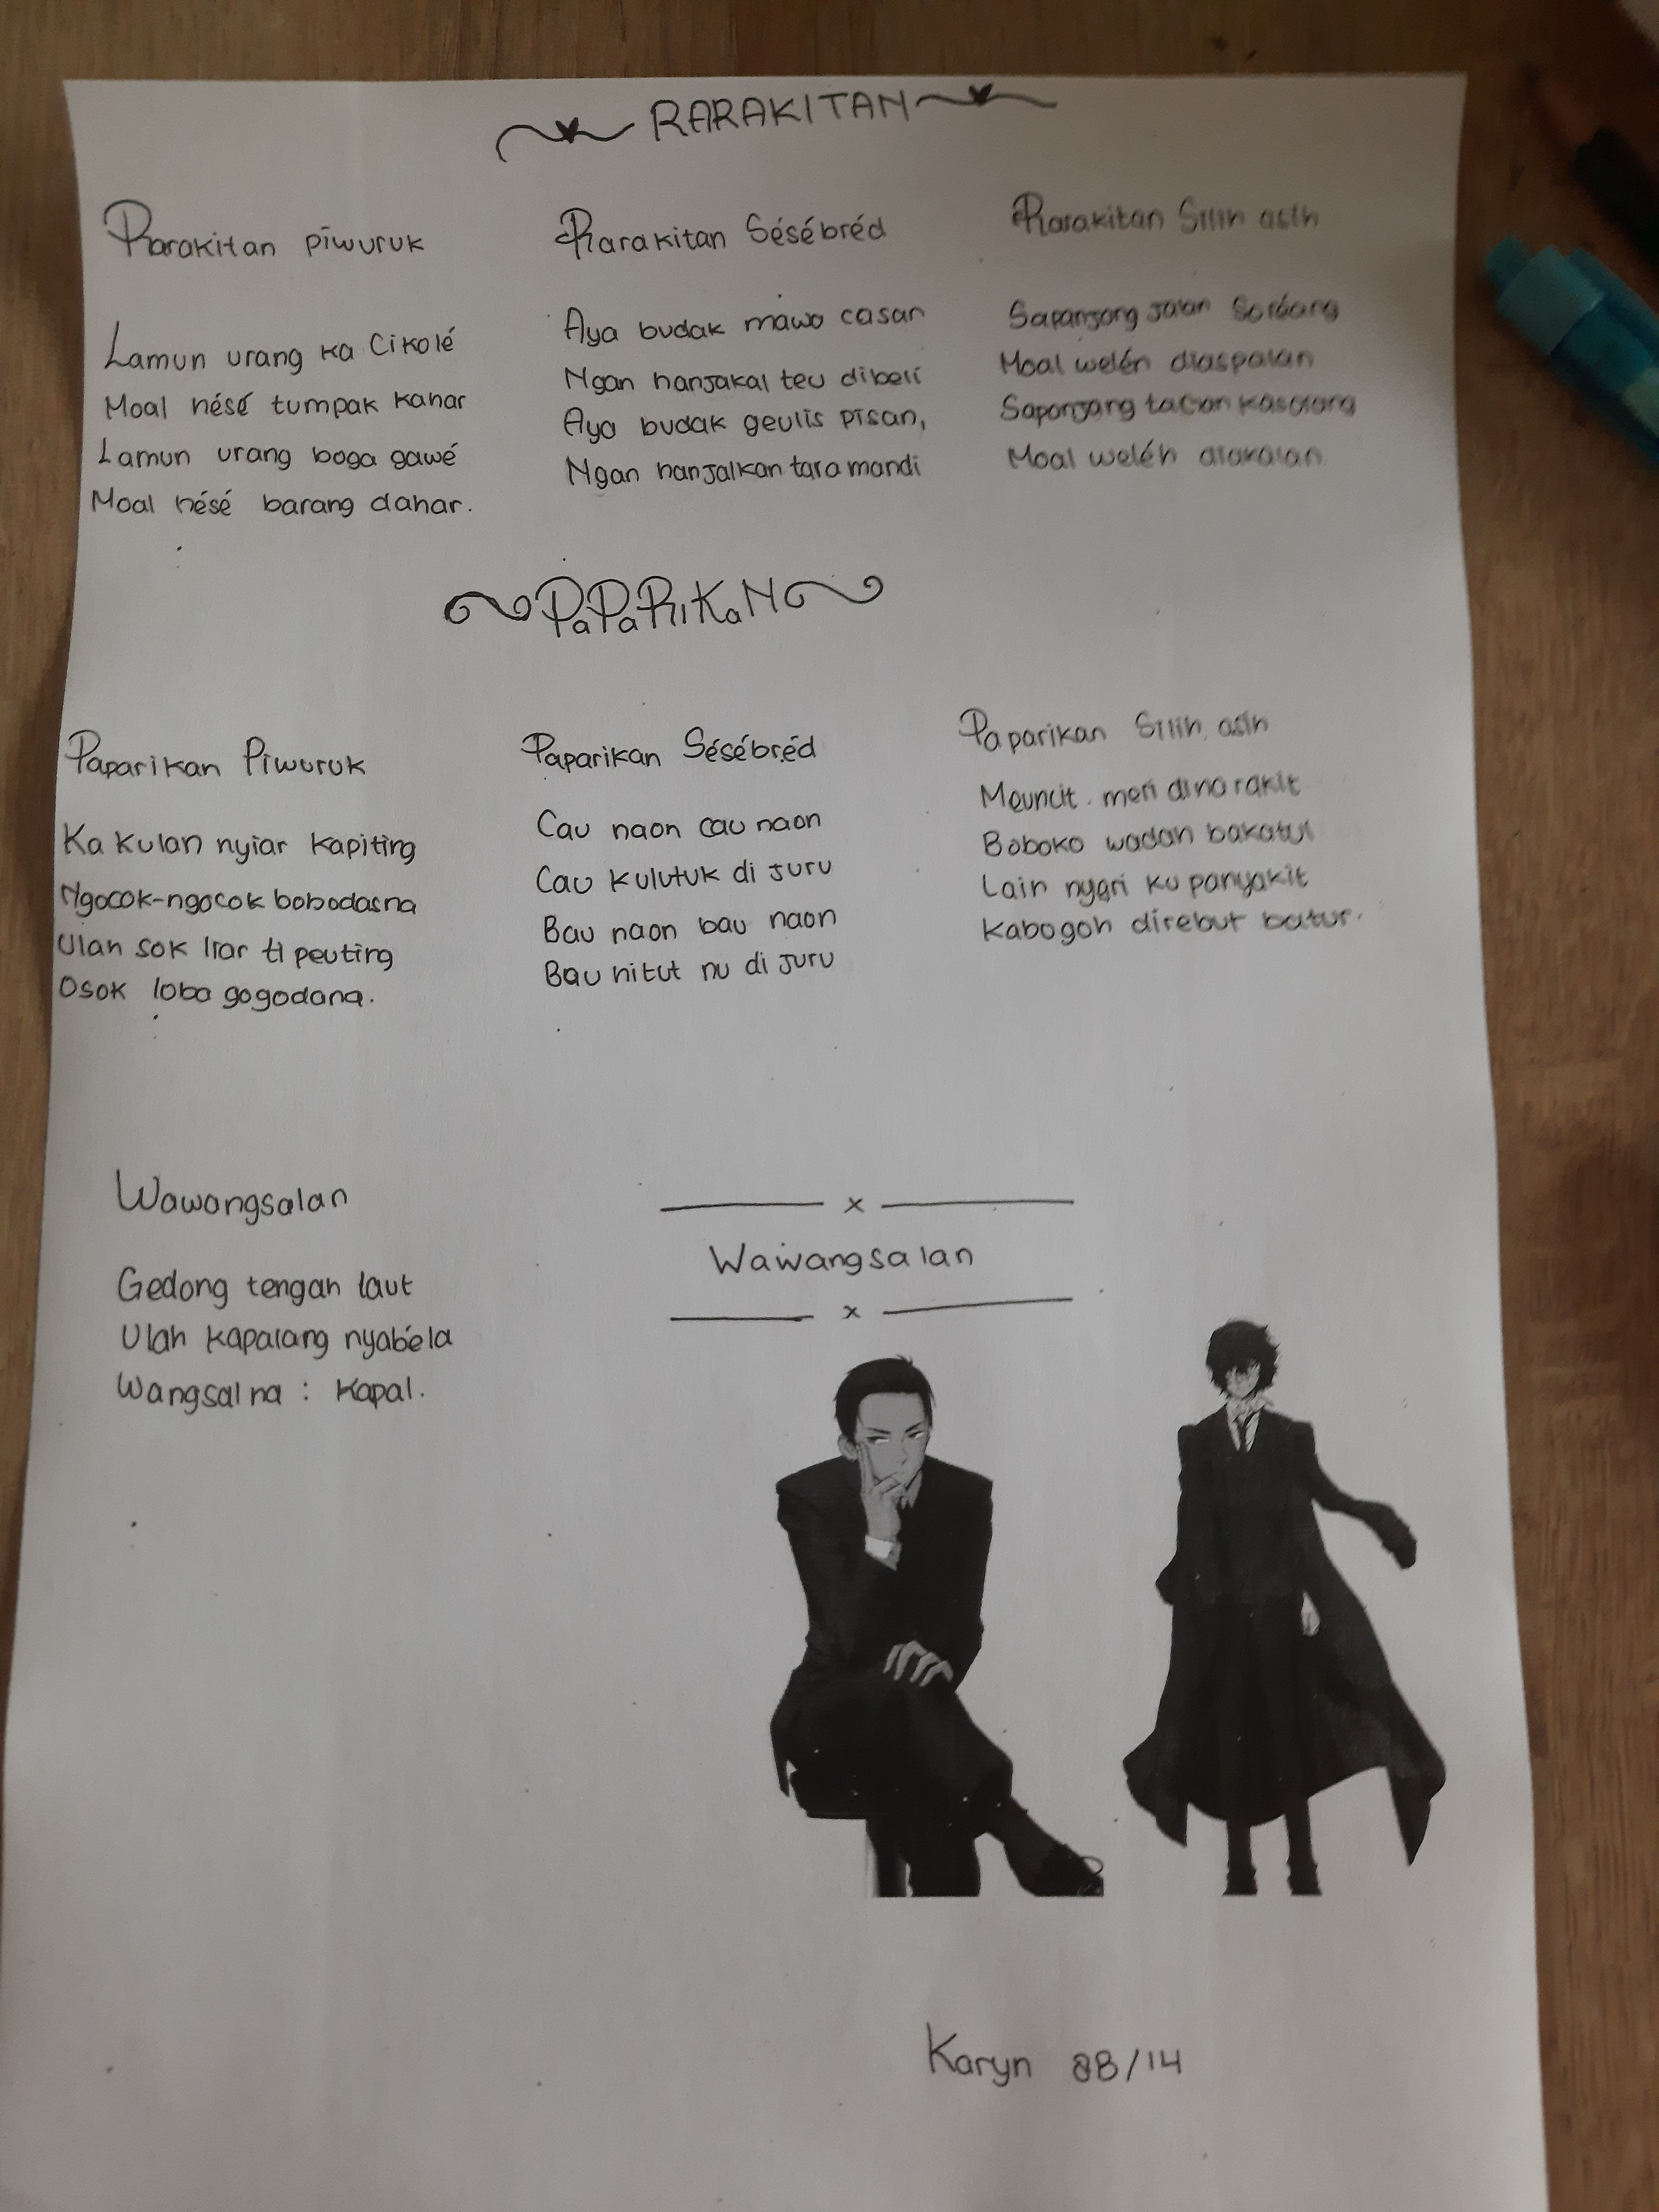 RARAKITAN
Rarakitan piwuruk
Lamun urang ka Cikolé
Moal hésé tumpak kahar
Lamun urang boga gawé
Moal hésé barang dahar.
Rarakitan Sésébréd
Aya budak mawa casan
Ngan hanjakal teu dibeli
Aya budak geulis pisan,
Ngan hanjalkan tara mandi
Rarakitan Silih asih
Sapanjang jalan Soréang
Moal weléh diaspalan
Sapanjang tacan kasorang
Moal weléh diakalan
PaPaRiKaN
Paparikan Piwuruk
Ka kulan nyiar kapiting
Ngocok-ngocok bobodasna
Ulah sok liar ti peuting
Osok loba gogodana.
Paparikan Sésébréd
Cau naon cau naon
Cau kulutuk di juru
Bau naon bau naon
Bau hitut nu di juru
Paparikan Silih asih
Meuncit meri dina rakit
Boboko wadah bakatul
Lain nyeri ku panyakit
Kabogoh direbut batur.
Wawangsalan
Gedong tengah laut
Ulah kapalang nyabéla
Wangsal na : Kapal.
x
Wawangsalan
x
Karyn 8B/14